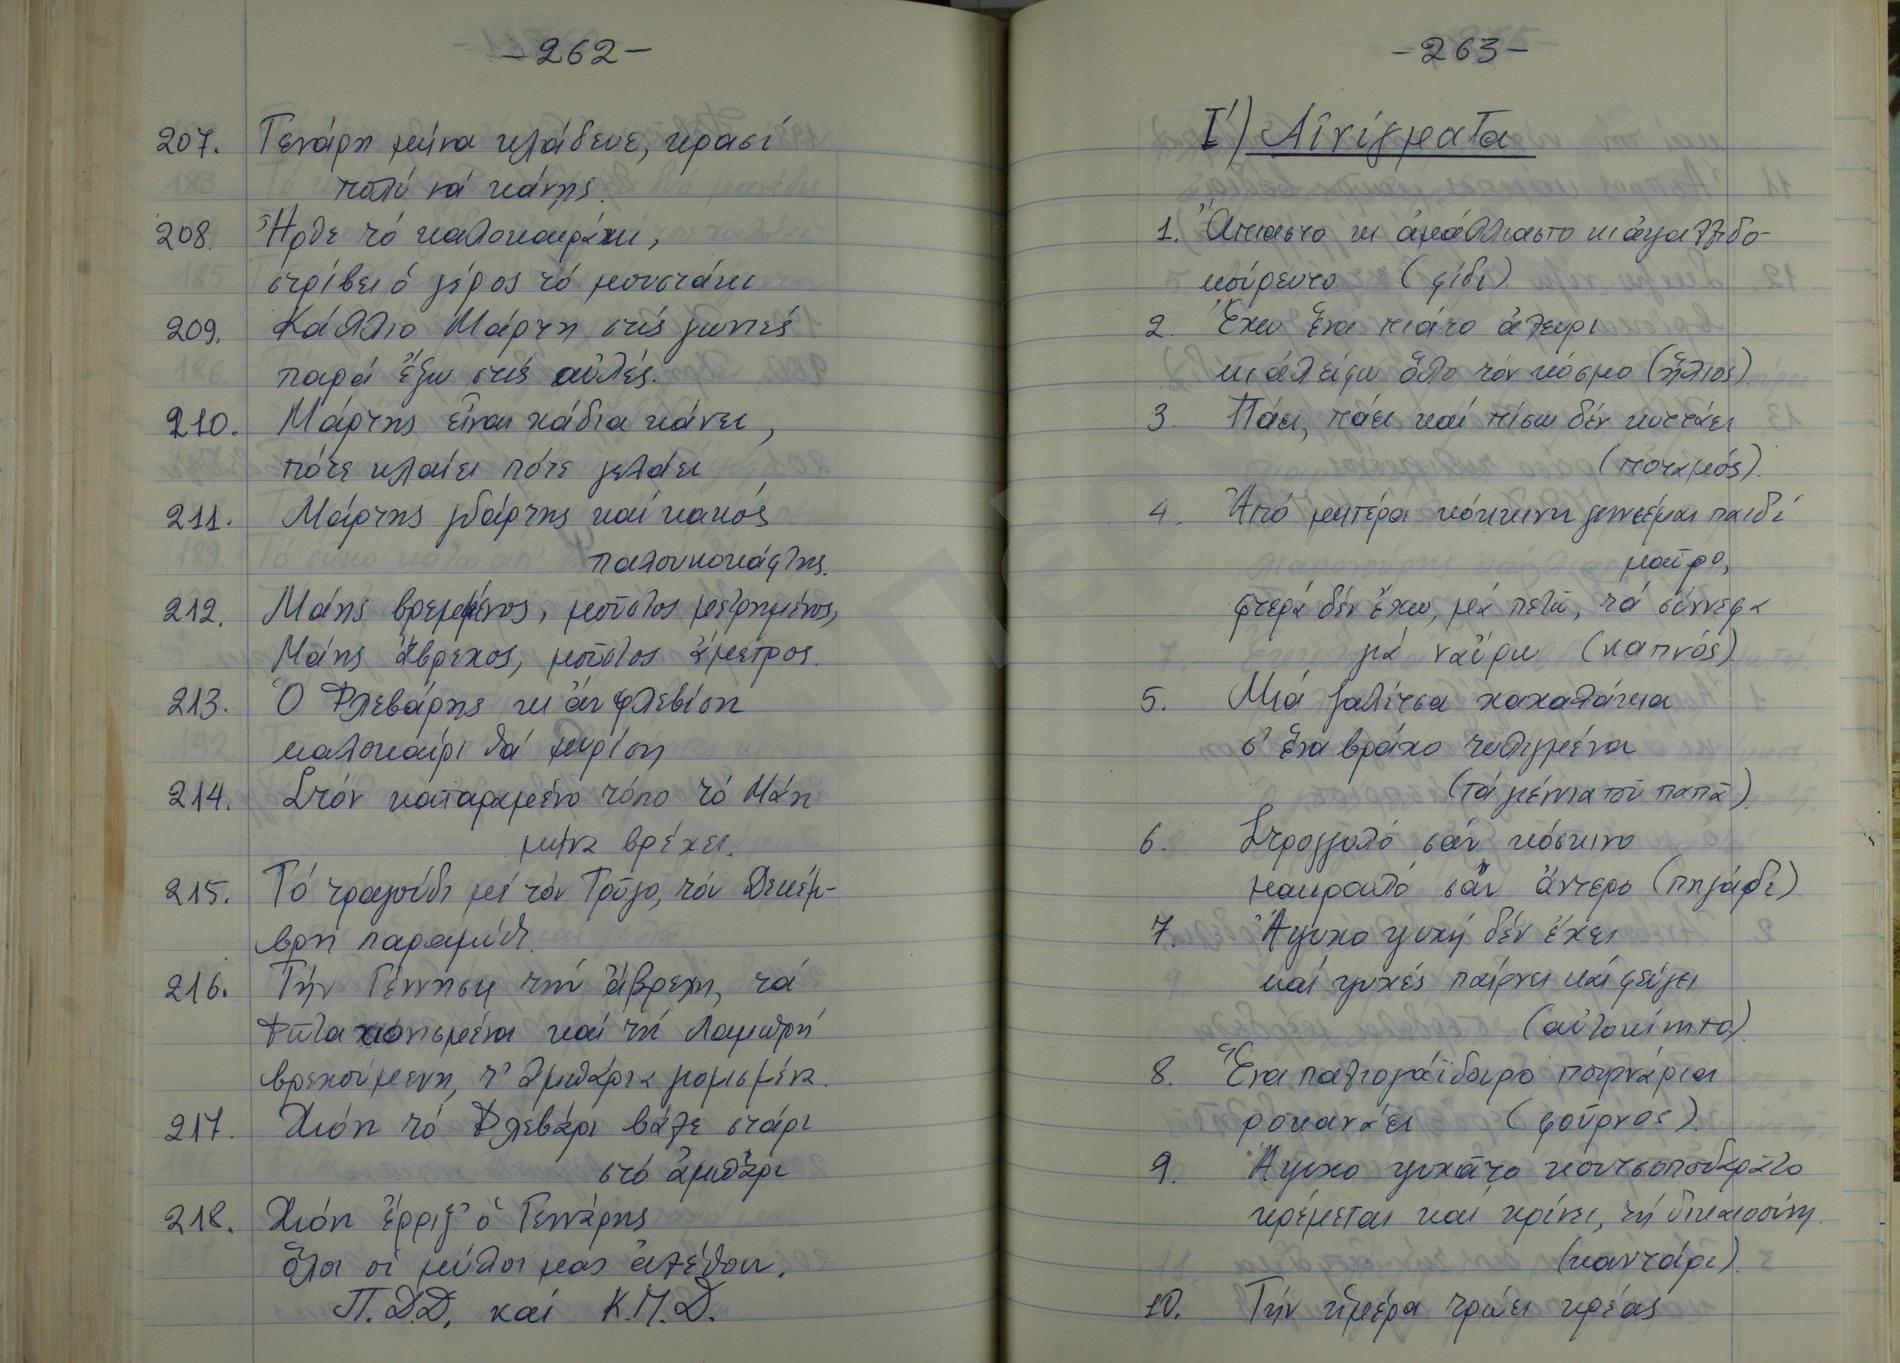 -262-
207. Γενάρη μήνα κλάδευε, κρασί
πολύ νά κάνης.
208. Ἦρθε τό καλοκαιράκι,
στρίβει ὁ γέρος τό μουστάκι
209. Κάλλιο Μάρτη στίς γωνιές
παρά ἔξω στίς αὐλές.
210. Μάρτης εἶναι χάδια κάνει,
πότε κλαίει πότε γελάει
211. Μάρτης γδάρτης καί κακός
παλουκοκάφτης.
212. Μάης βρεμμένος, μοῦστος μετρημένος,
Μάης ἄβρεχος, μοῦστος ἄμετρος.
213. Ὁ Φλεβάρης κι ἄν φλεβίση
καλοκαίρι θά μυρίση
214. Στόν καταραμένο τόπο τό Μάη
μήνα βρέχει.
215. Τό τραγούδι μέ τόν Τρῦγο, τόν Δεκέμ-
βρη παραμύθι.
216. Τήν Γέννηση τήν ἄβρεχη, τά
Φῶτα χιονισμένα καί τή Λαμπρή
βρεχούμενη, τ' ἀμπάρια γιομισμένα.
217. Χιόνι τό Φλεβάρι βάλε στάρι
στό ἀμπάρι
218. Χιόνι ἔρριξ' ὁ Γεννάρης
ὅλοι οἱ μύλοι μας ἀλέθουν.
Π.Δ.Δ. καί Κ.Π.Δ.
-263-
Ι') Αἰνίγματα
1. Ἄπιαστο κι ἀμάλλιαστο κι ἀψαλλιδο-
κούρευτο. (φίδι)
2. Ἔχω ἕνα πιάτο ἀλεύρι
κι ἀλείφω ὅλο τόν κόσμο (ἥλιος)
3. Πάει, πάει καί πίσω δέν κυττάει
(ποταμός).
4. Ἀπό μητέρα κόκκινη γεννιέμαι παιδί
μαῦρο,
φτερά δέν ἔχω, μά πετῶ, τά σύννεφα
γιά ναὔρω (καπνός)
5. Μιά γαλίτσα χαχαλάκια
σ' ἕνα βράχο τυλιγμένα
(τά γένεια τοῦ παπᾶ)
6. Στρογγυλό σάν κόσκινο
μακρουλό σάν ἄντερο (πηγάδι)
7. Ἄψυχο ψυχή δέν ἔχει
καί ψυχές παίρνει καί φεύγει
(αὐτοκίνητο)
8. Ἕνα παλιογάϊδουρο πουρνάρια
ροκανάει (φοῦρνος).
9. Ἄψυχο ψυχᾶτο κουτσοποδαρᾶτο
κρέμεται καί κρίνει, τή δικαιοσύνη.
(καντάρι)
10. Τήν ἡμέρα τρώει κρέας